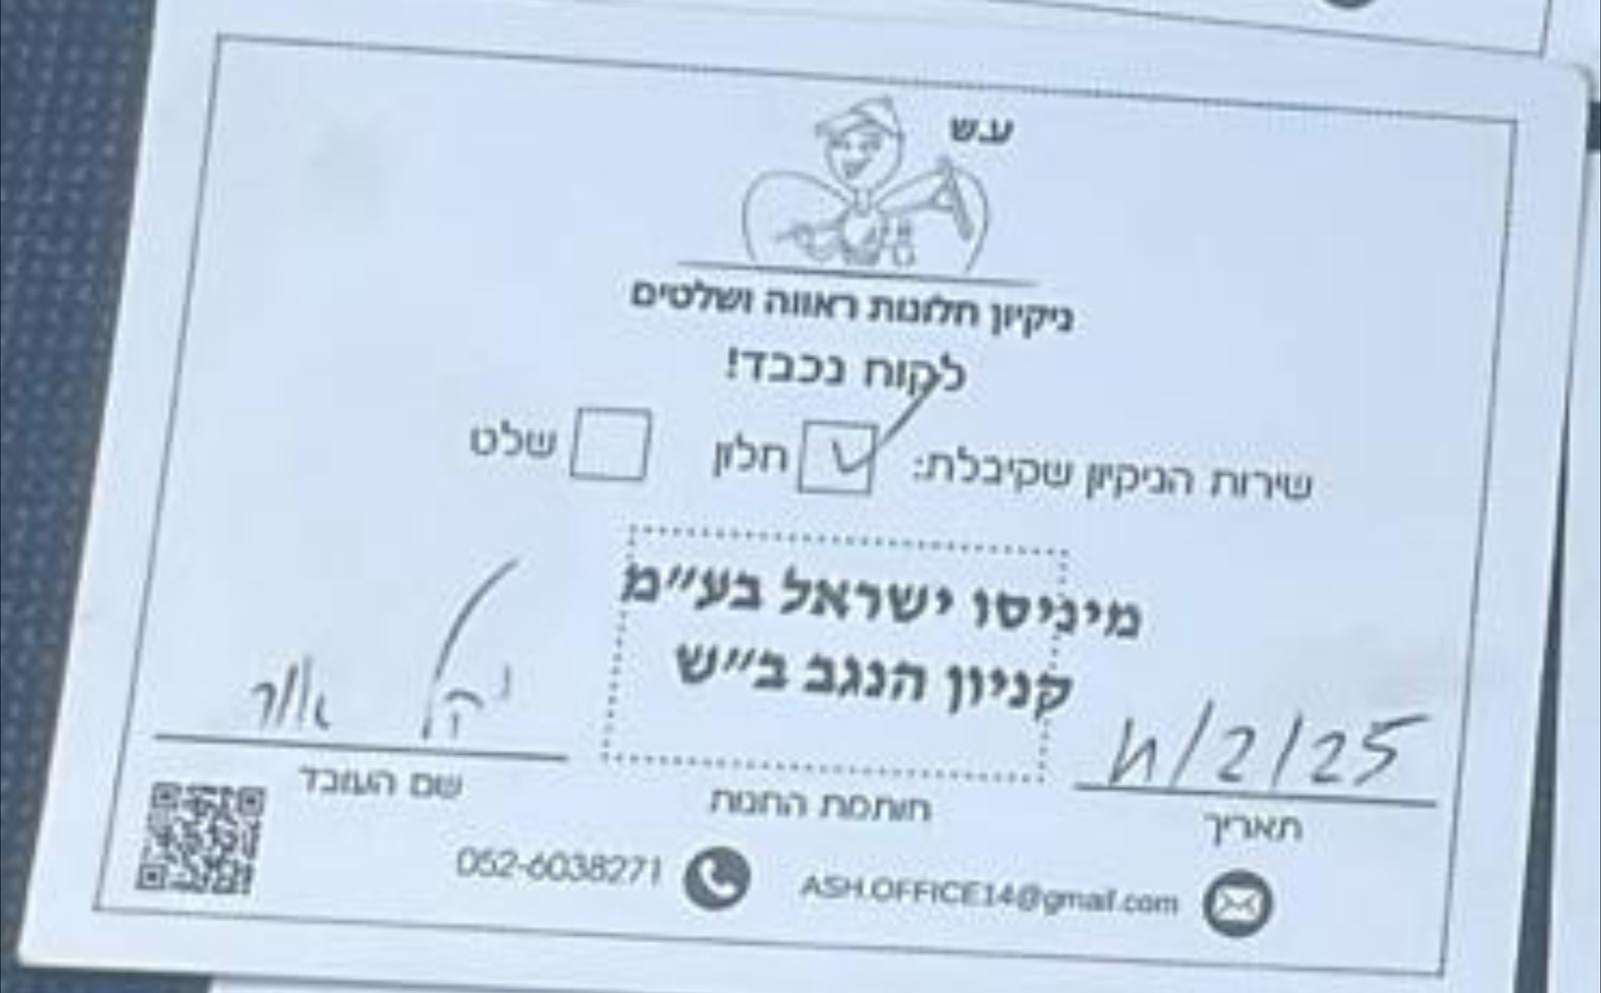 ע.ש
ניקיון חלונות ראווה ושלטים
לקוח נכבד!
שירות הניקיון שקיבלת: חלון שלט
מיניסו ישראל בע״מ
קניון הנגב ב״ש
/2/25
תאריך
חותמת החנות
שם העובד
ASH.OFFICE14@gmail.com
052-6038271